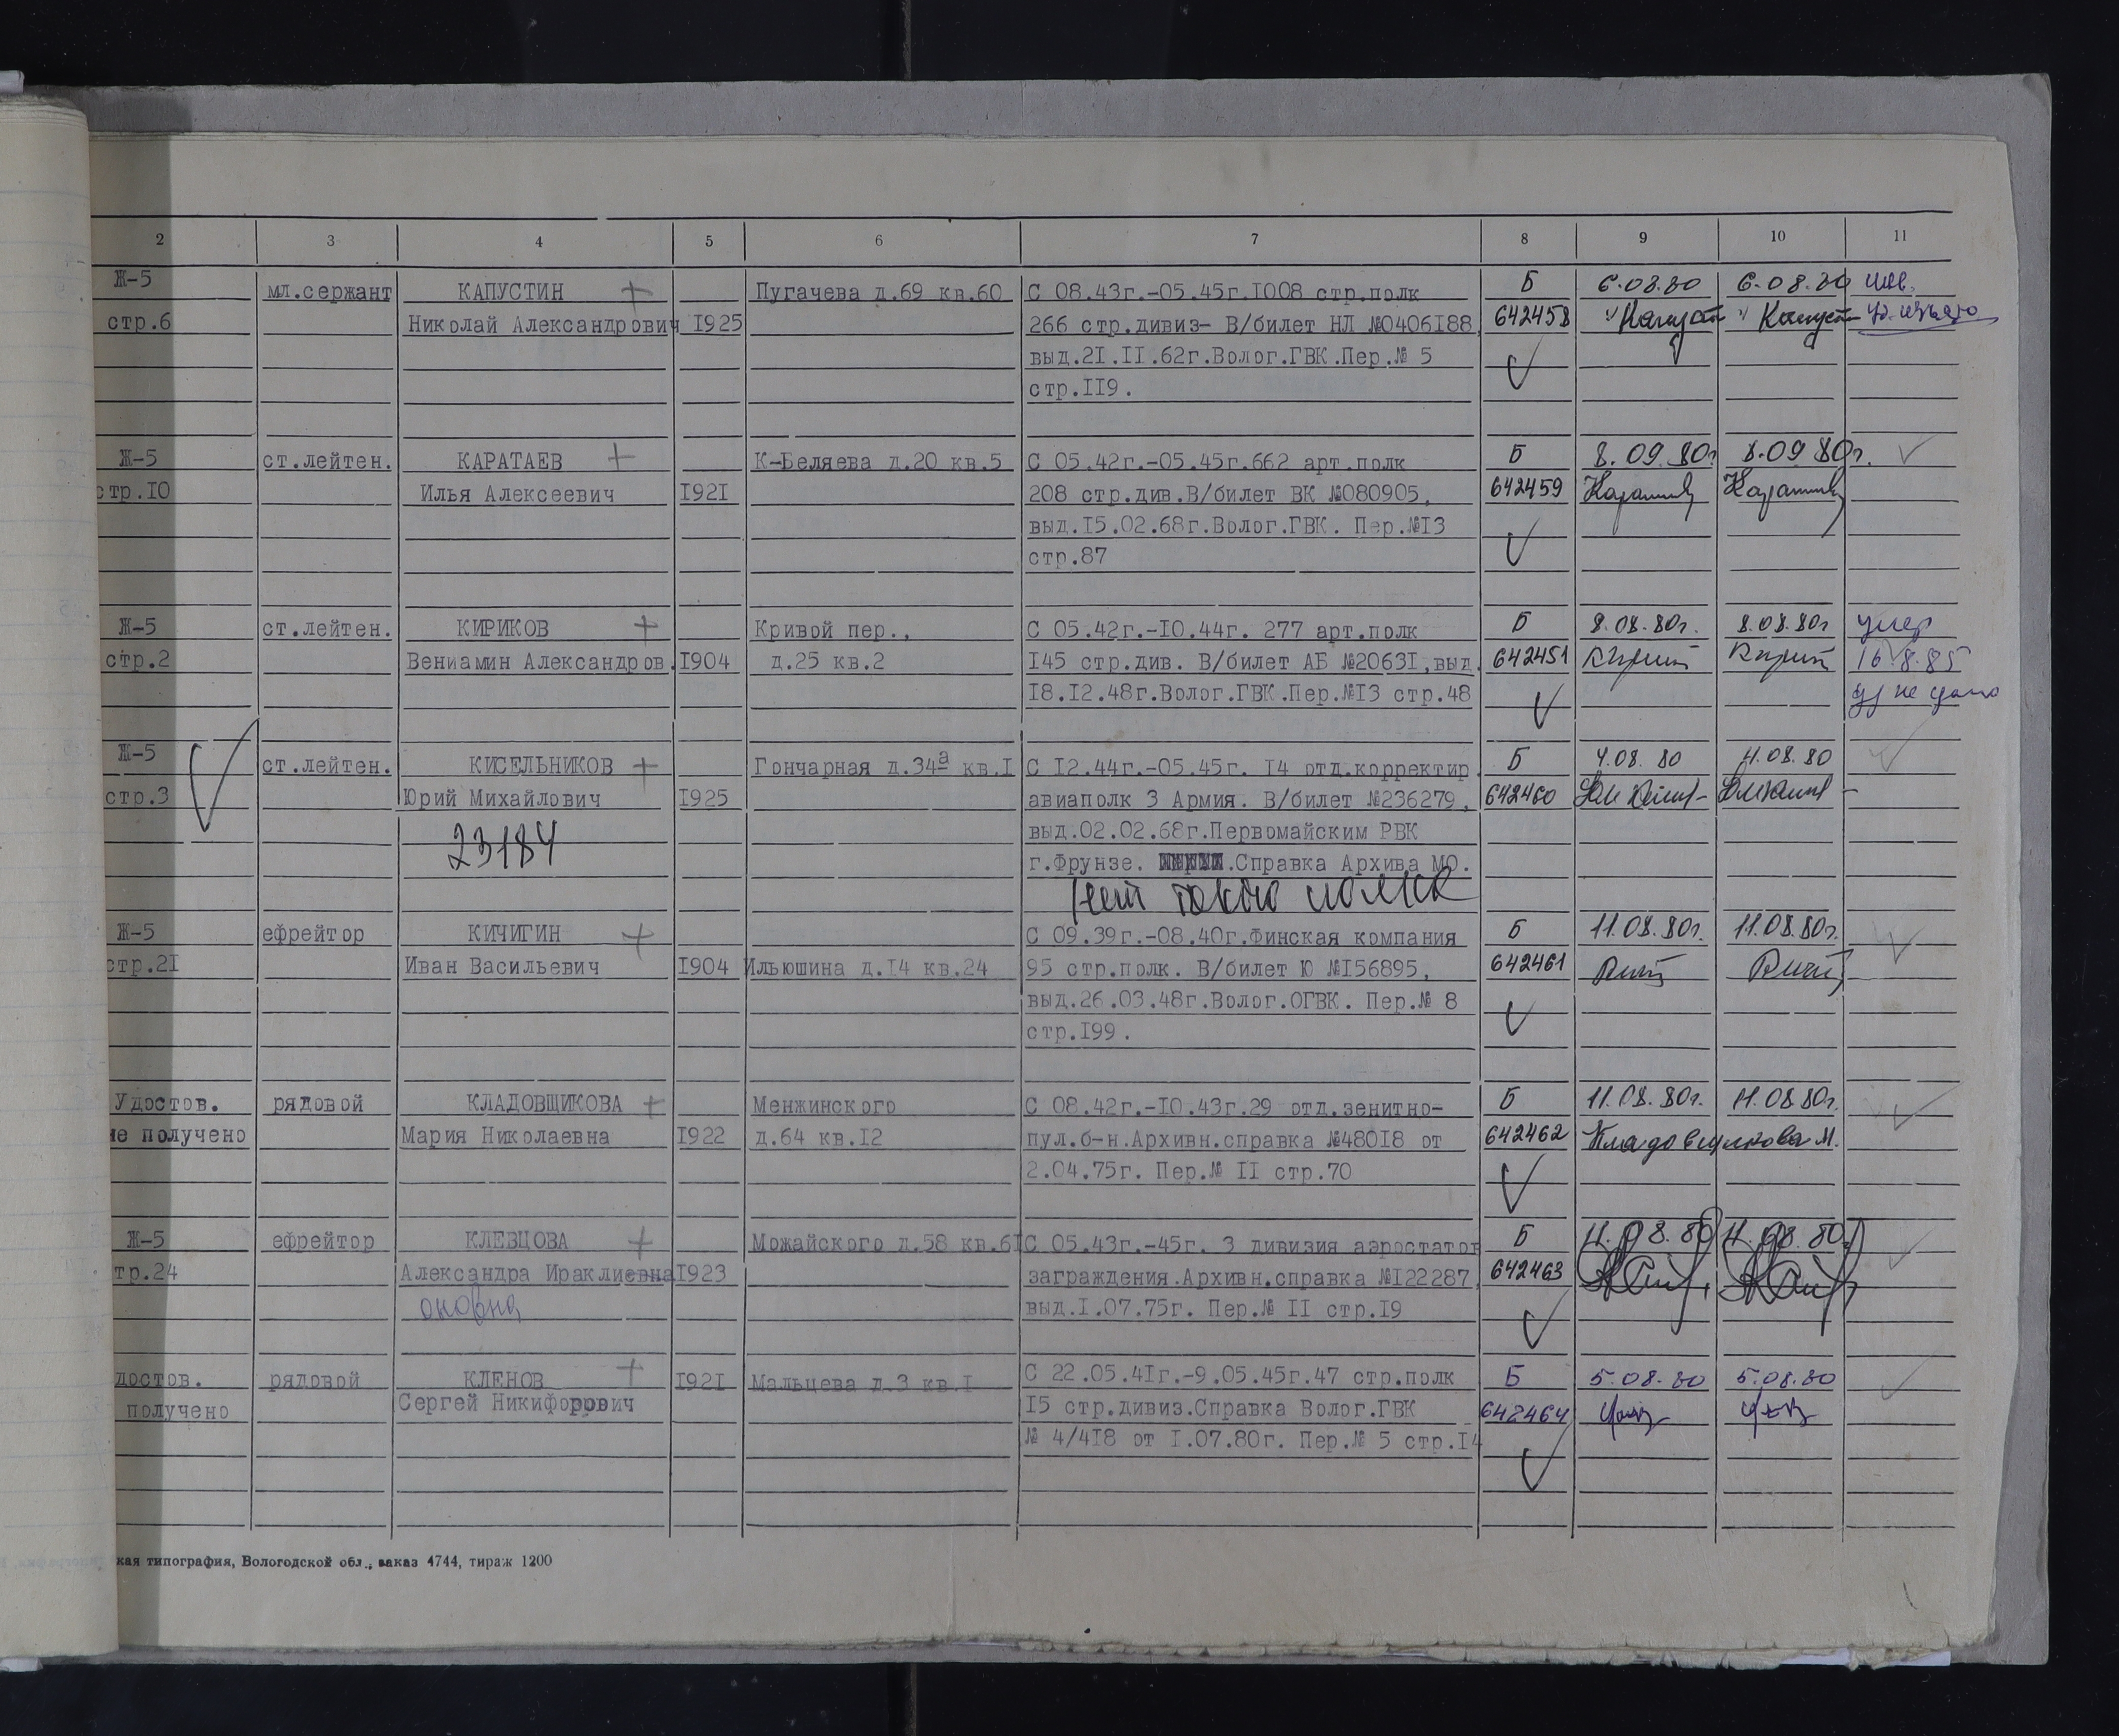 2 3 4 5 6 7 8 9 10 11
Ж-5 мл.сержант КАПУСТИН + Пугачева д.69 кв.60 С 08.43г.-05.45г.I008 стр.полк Б 6.08.80 6.08.80 инв.
стр.6 Николай Александрович I925 266 стр.дивиз- В/билет НЛ №0406I88, 642458
выд.2I.II.62г.Волог.ГВК.Пер.№ 5
стр.II9.
Ж-5 ст.лейтен. КАРАТАЕВ + К-Беляева д.20 кв.5 С 05.42г.-05.45г.662 арт.полк Б 8.09.80г. 8.09 80г.
стр.I0 Илья Алексеевич I92I 208 стр.див.В/билет ВК №080905, 642459
выд.I5.02.68г.Волог.ГВК. Пер.№I3
стр.87
Ж-5 ст.лейтен. КИРИКОВ + Кривой пер., С 05.42г.-I0.44г. 277 арт.полк Б 8.08.80г. 8.08.80г умер
стр.2 Вениамин Александров. I904 д.25 кв.2 I45 стр.див. В/билет АБ №2063I,выд. 642451 16.8.85
I8.I2.48г.Волог.ГВК.Пер.№I3 стр.48 уд не сдано
Ж-5 ст.лейтен. КИСЕЛЬНИКОВ + Гончарная д.34а кв.I С I2.44г.-05.45г. I4 отд.корректир. Б 4.08. 80 4.08.80
стр.3 Юрий Михайлович I925 авиаполк 3 Армия. В/билет №236279, 642460
23184 выд.02.02.68г.Первомайским РВК
г.Фрунзе. .Справка Архива МО.
Нет такого полка
Ж-5 ефрейтор КИЧИГИН + С 09.39г.-08.40г.Финская компания Б 11.08.80г. 11.08.80г.
стр.2I Иван Васильевич I904 Ильюшина д.I4 кв.24 95 стр.полк. В/билет Ю №I56895, 642461
выд.26.03.48г.Волог.ОГВК. Пер.№ 8
стр.I99.
Удостов. рядовой КЛАДОВЩИКОВА + Менжинского С 08.42г.-I0.43г.29 отд.зенитно- Б 11.08.80г. 11.08.80г.
не получено Мария Николаевна I922 д.64 кв.I2 пул.б-н.Архивн.справка №480I8 от 642462 Кладовщикова М.
2.04.75г. Пер.№ II стр.70
Ж-5 ефрейтор КЛЕВЦОВА + Можайского д.58 кв.6I С 05.43г.-45г. 3 дивизия аэростатов Б 11.08.80 11.08.80
тр.24 Александра Ираклиевна I923 заграждения.Архивн.справка №I22287, 642463
оновна выд.I.07.75г. Пер.№ II стр.I9
достов. рядовой КЛЕНОВ + I92I Мальцева д.3 кв.I С 22.05.4Iг.-9.05.45г.47 стр.полк Б 5.08.80 5.08.80
получено Сергей Никифорович I5 стр.дивиз.Справка Волог.ГВК 642464
№ 4/4I8 от I.07.80г. Пер.№ 5 стр.I4
кая типография, Вологодской обл., заказ 4744, тираж 1200